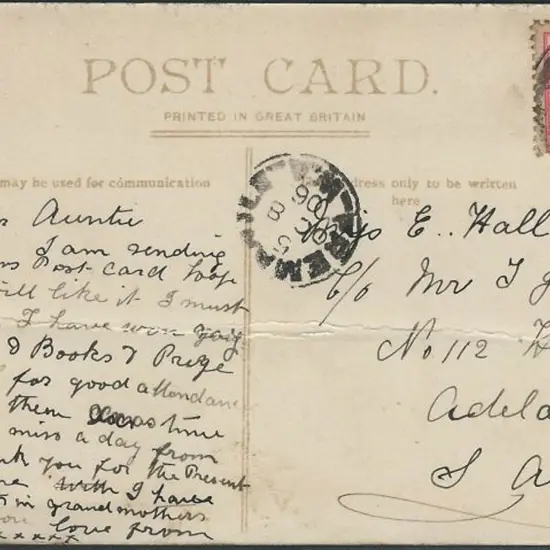 POST CARD.
PRINTED IN GREAT BRITAIN
may be used for communication
dress only to be written
here
Auntie
I am sending
Post card hope
like it I must
I have won
& Books & Prize
for good attendan
them time
miss a day from
you for the Present
with I have
in grandmothers
love from
xxxxx
Miss E.. Hall
C/o Mr T
No 112 H
Adela
S A